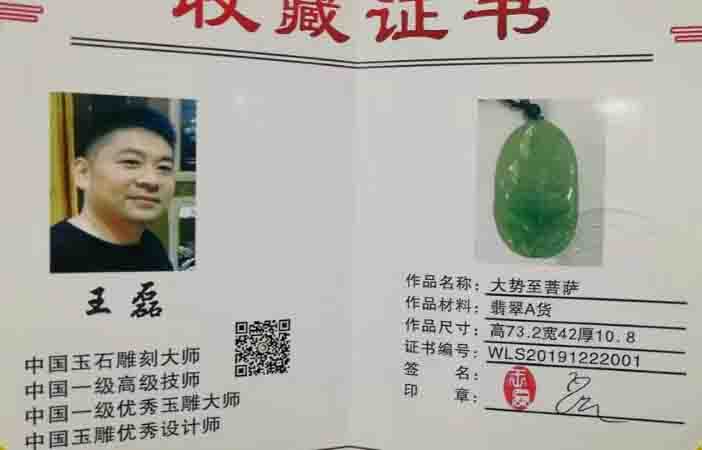 收藏证书
王磊
中国玉石雕刻大师
中国一级高级技师
中国一级优秀玉雕大师
中国玉雕优秀设计师
作品名称：大势至菩萨
作品材料：翡翠A货
作品尺寸：高73.2宽42厚10.8
证书编号：WLS20191222001
签 名：
印 章：